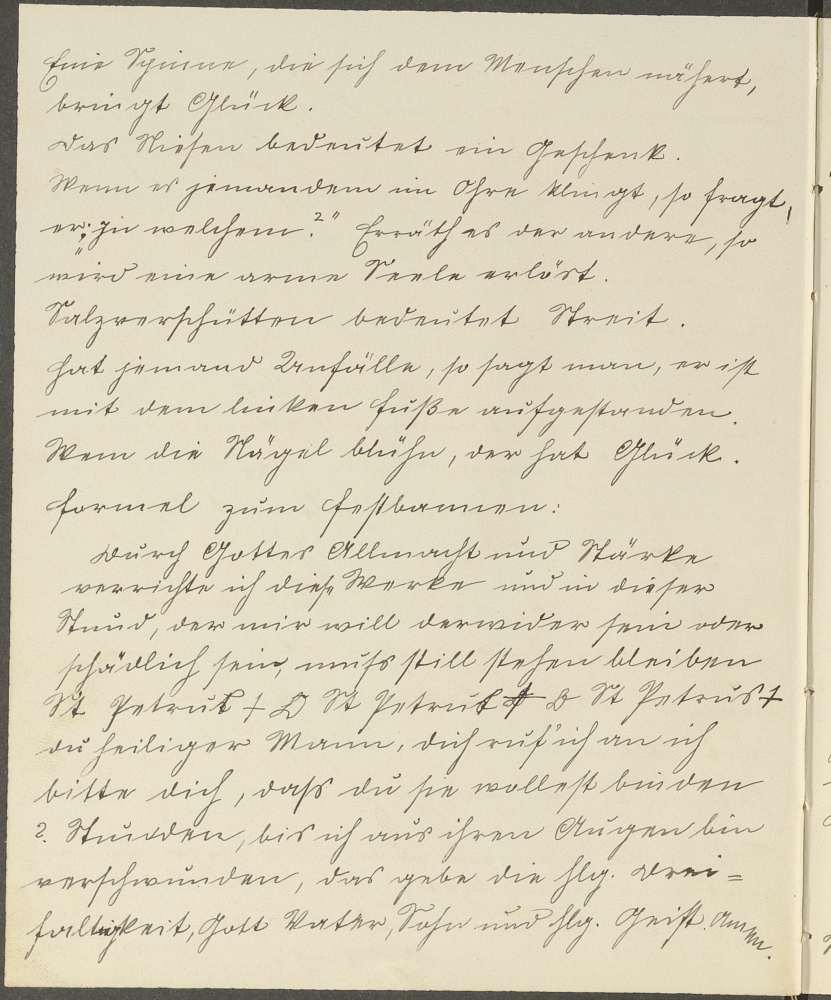 Eine Spinne, die sich dem Menschen nähert,
bringt Glück.
Das Niesen bedeutet ein Geschenk.
Wenn es jemandem im Ohre klingt, so fragt
er: „In welchem?" Erräth es der andere, so
wird eine arme Seele erlöst.
Salzverschütten bedeutet Streit.
Hat jemand Unfälle, so sagt man, er ist
mit dem linken Fuße aufgestanden.
Wem die Nägel blühn, der hat Glück.
Formel zum Festbannen:
Durch Gottes Allmacht und Stärke
verrichte ich diese Werke und in dieser
Stund, der mir will derwider sein oder
schädlich sein, muſs still stehen bleiben
St Petrus + O St Petrus + O St Petrus +
du heiliger Mann, dich ruf' ich an ich
bitte dich, daſs du sie wollest binden
2. Stunden, bis ich aus ihren Augen bin
verschwunden, das gebe die hlg. Drei=
faltigkeit, Gott Vater, Sohn und hlg. Geist. Amen.